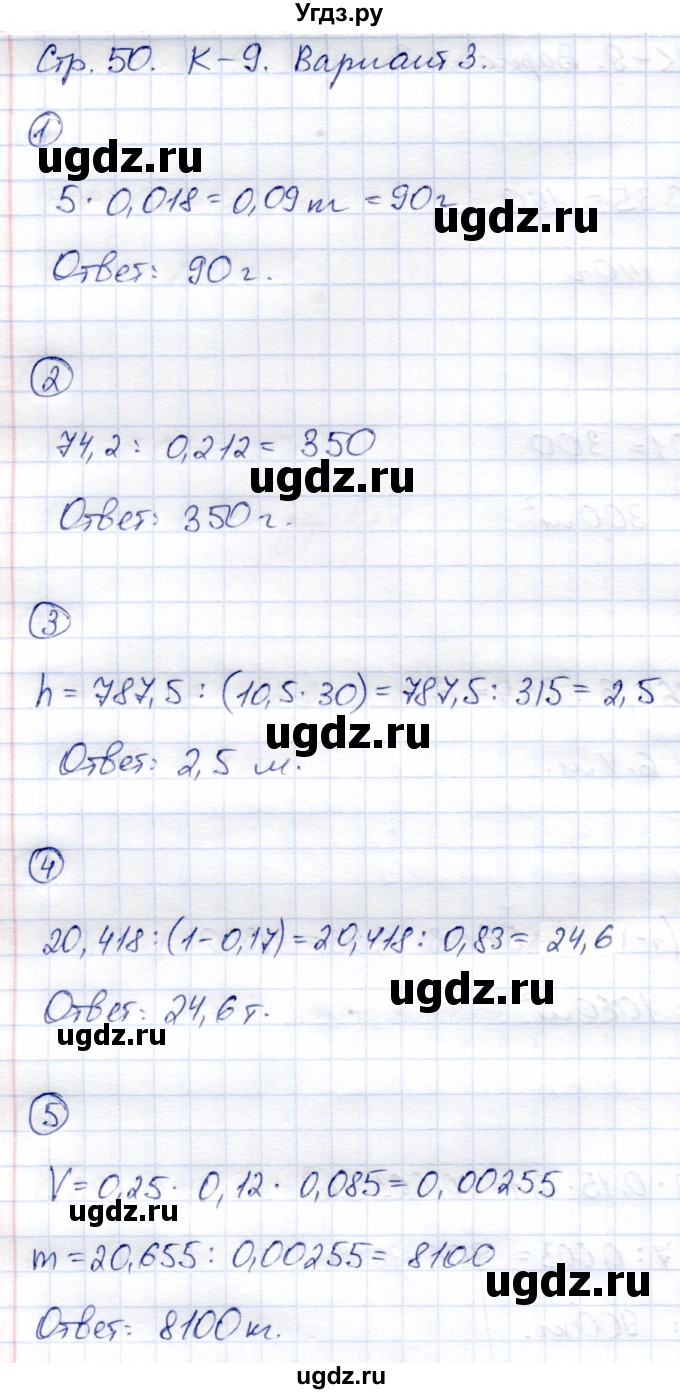 Угдз.ру
Стр. 50. К-9. Вариант 3.
1
ugdz.ru
5 · 0,018 = 0,09 т = 90 г
ugdz.ru
Ответ: 90 г.
2
74,2 : 0,212 = 350
ugdz.ru
Ответ: 350 г.
3
h = 787,5 : (10,5 · 30) = 787,5 : 315 = 2,5
ugdz.ru
Ответ: 2,5 м.
4
20,418 : (1 - 0,17) = 20,418 : 0,83 = 24,6
ugdz.ru
Ответ: 24,6 т.
ugdz.ru
5
V = 0,25 · 0,12 · 0,085 = 0,00255
ugdz.ru
m = 20,655 : 0,00255 = 8100
ugdz.ru
Ответ: 8100 кг.
ugdz.ru